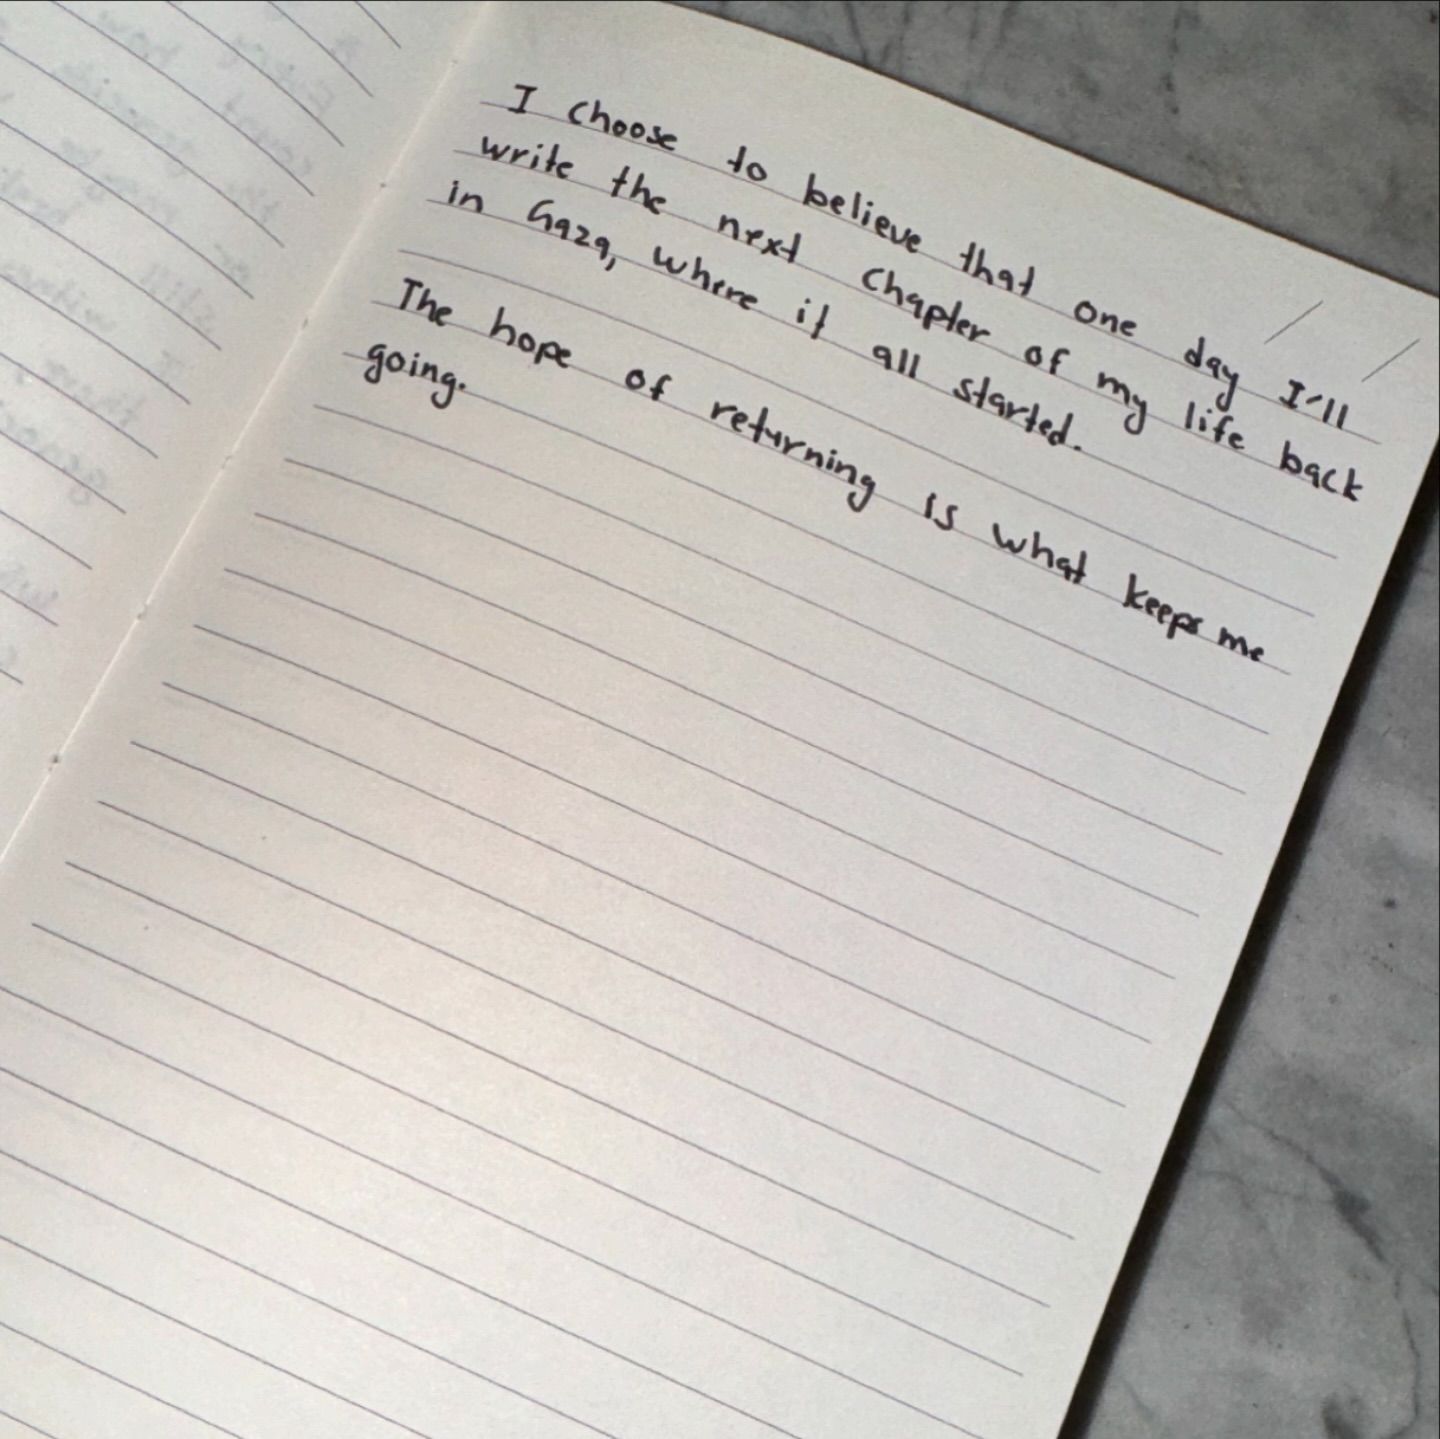 I choose to believe that one day I'll
write the next chapter of my life back
in Gaza, where it all started.
The hope of returning is what keeps me
going.